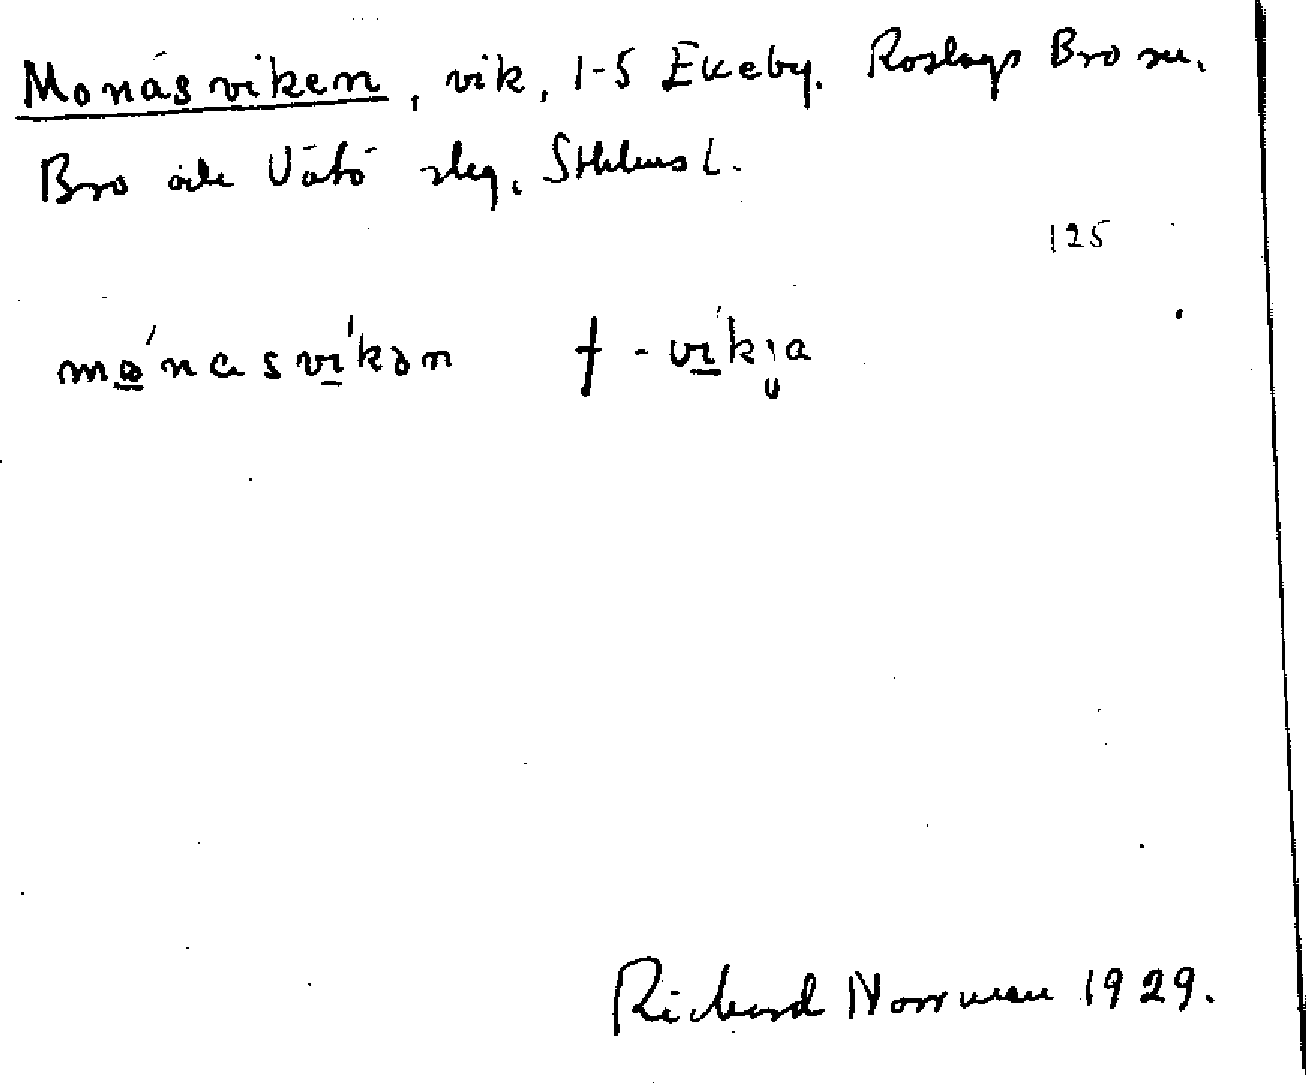 Monäsviken, vik, 1-5 Ekeby. Roslags Bro sn.
Bro och Vätö skg, Sthlms l.
125
mo̲´nasvi̲´kən † -vi̲´ki̯a
Richard Norrman 1929.